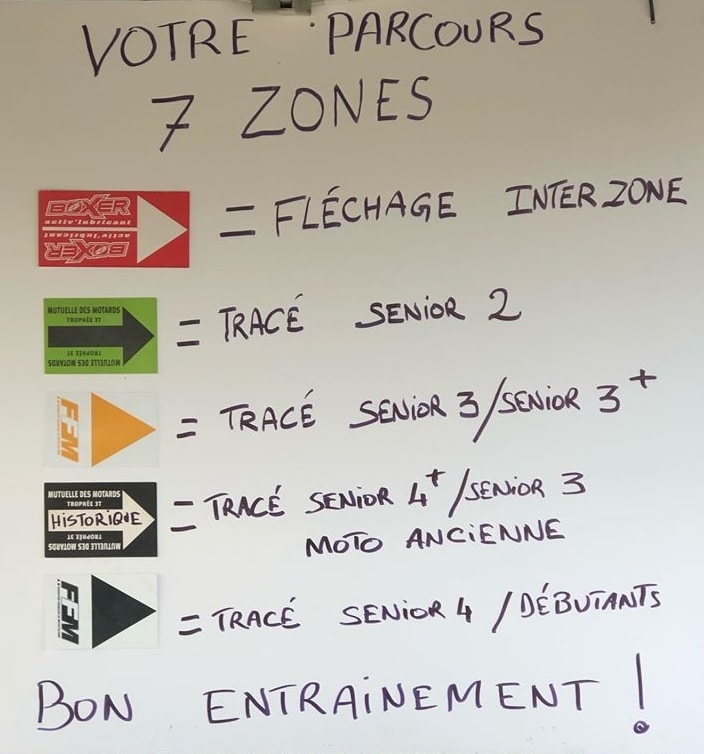 VOTRE PARCOURS
7 ZONES
BOXER
activ'lubricant
activ'lubricant
BOXER
= FLÉCHAGE INTERZONE
MUTUELLE DES MOTARDS
TROPHÉE 3T
TROPHÉE 3T
MUTUELLE DES MOTARDS
= TRACÉ SENIOR 2
FFM
= TRACÉ SENIOR 3/SENIOR 3+
MUTUELLE DES MOTARDS
TROPHÉE 3T
HISTORIQUE
TROPHÉE 3T
MUTUELLE DES MOTARDS
= TRACÉ SENIOR 4+/SENIOR 3
MOTO ANCIENNE
FFM
= TRACÉ SENIOR 4 / DÉBUTANTS
BON ENTRAINEMENT !